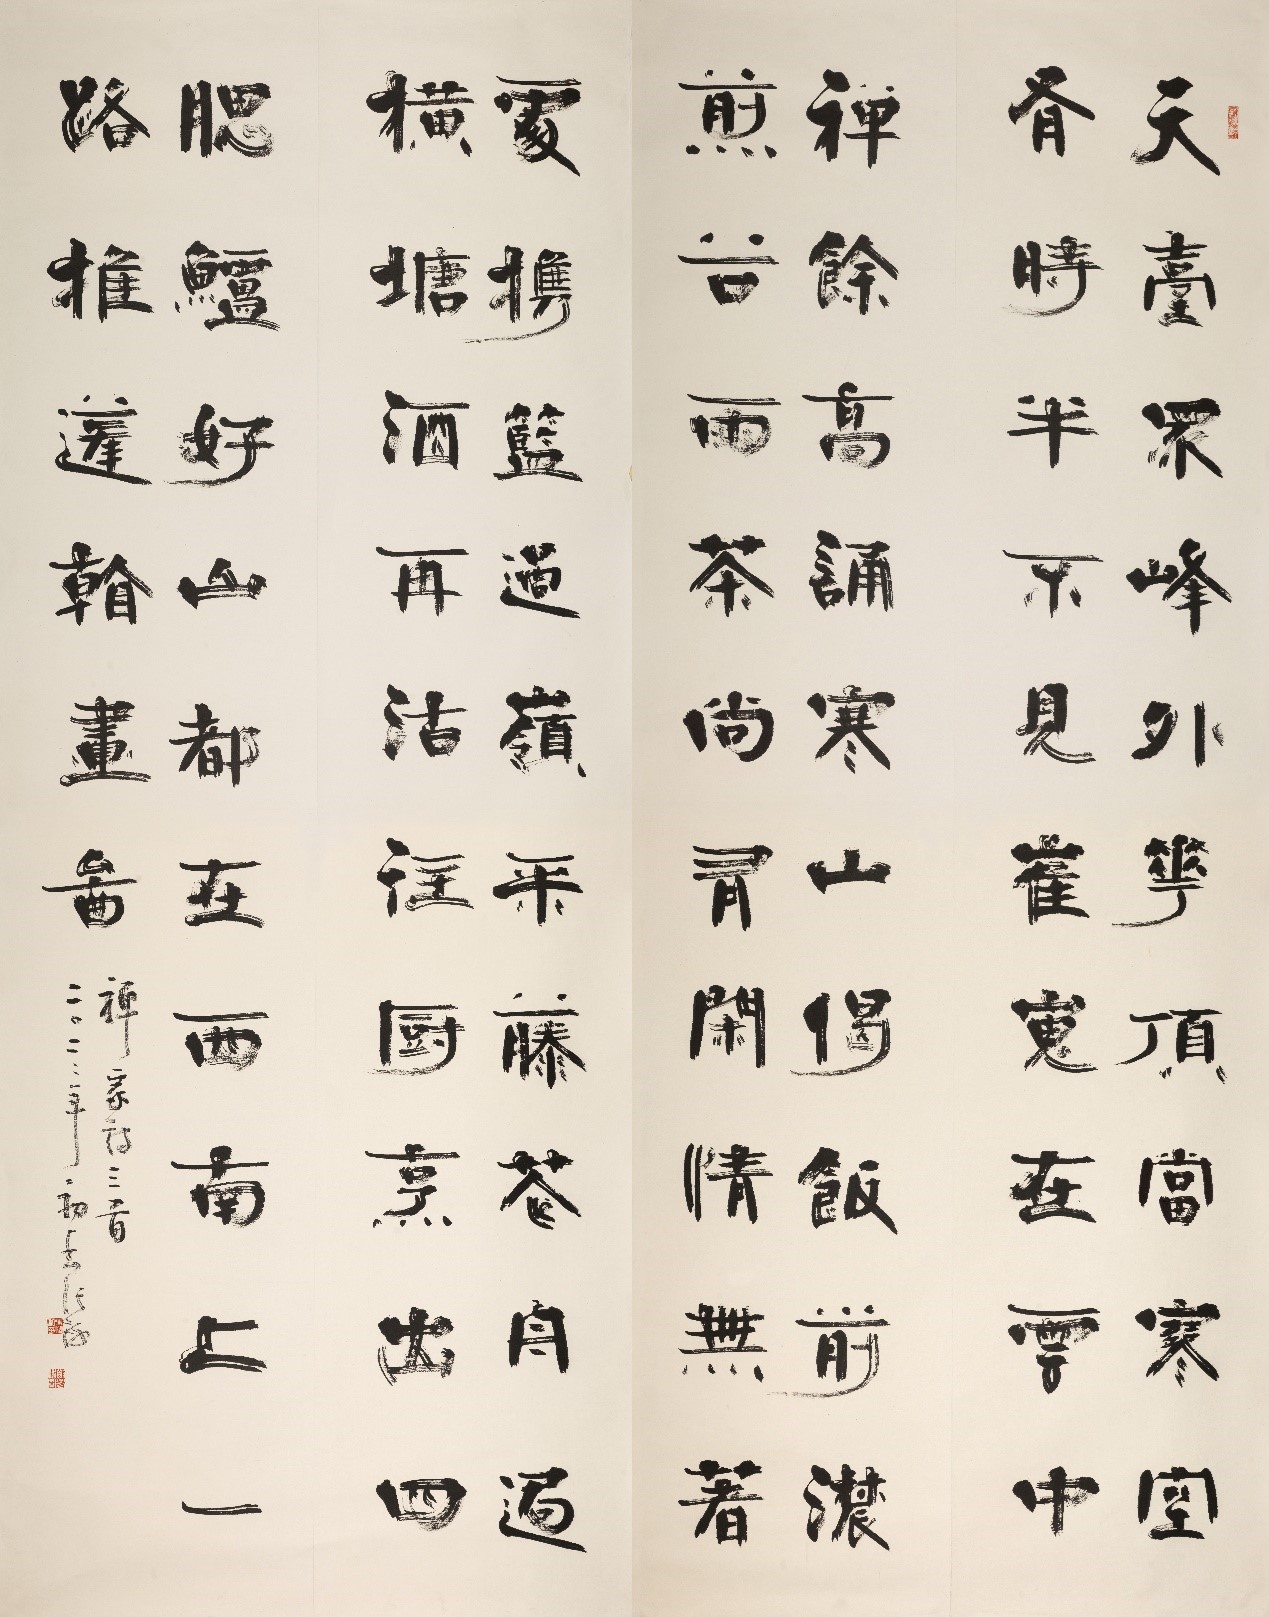 天臺眾峰外華頂當寒空
有時半不見崔嵬在雲中
禪餘高誦寒山偈飯前濃
煎谷雨茶尚有閑情無著
處攜籃過嶺采藤花舟過
橫塘酒再沽往厨烹出四
腮鱸好山都在西南上一
路推蓬翰畫圖
禪家詩三首
二〇二三年初